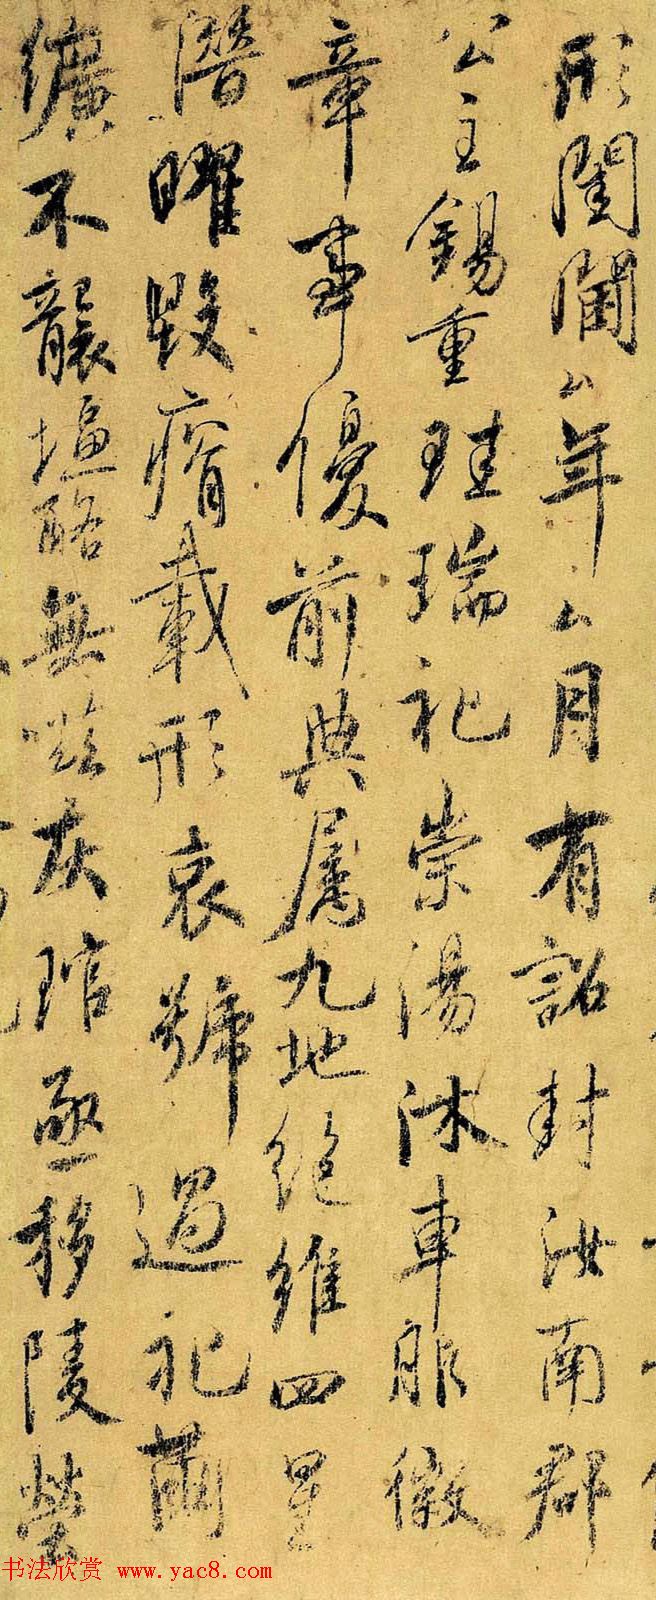 形閨閫厶年厶月有詔封汝南郡
公主錫重珪瑞礼崇湯沐車服徽
章事優前典属九地絶維四星
潛曜毀瘠載形哀號過礼繭
纊不襲塩酪無嗞灰琯亟移陵塋
书法欣赏 www.yac8.com